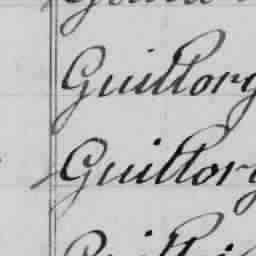 Guillory
Guillory